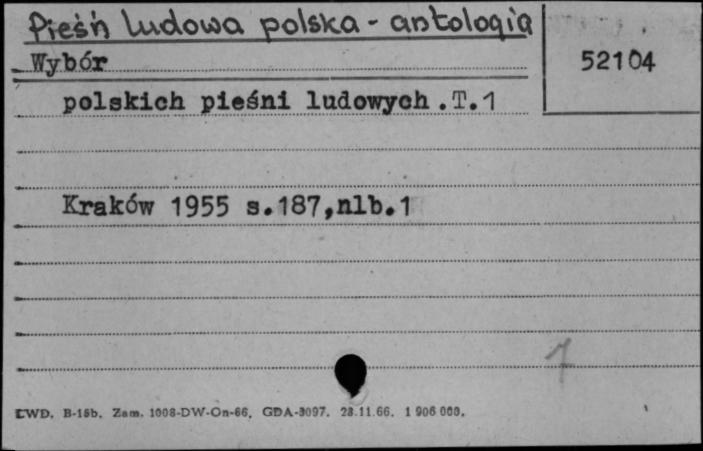 Pieśń ludowa polska - antologia
Wybór
52104
polskich pieśni ludowych.T.1
Kraków 1955 s.187,nlb.1
1
CWD. B-15b. Zam. 1008-DW-On-66. GDA-3097. 28.11.66. 1 906 000.